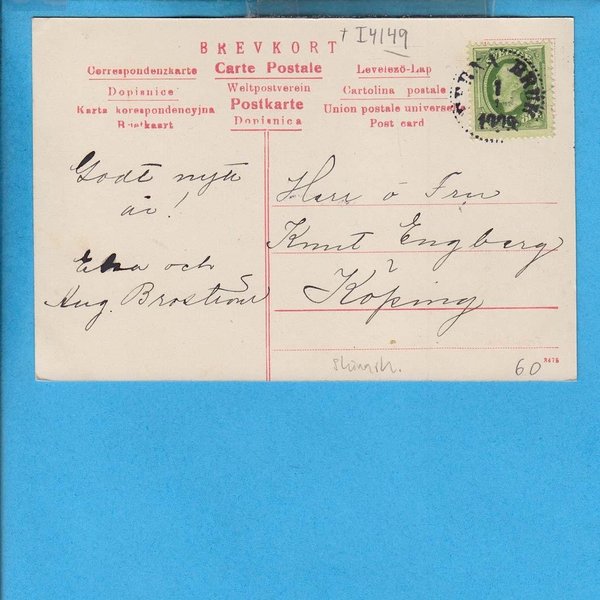 + I4149
BREVKORT
Correspondenzkarte Carte Postale Levelező-Lap
Dopisnice Weltpostverein Cartolina postale
Karta korespondencyjna Postkarte Union postale universe
Brefkaart Dopisnica Post card
BRUK
1
1909
Godt nytt
år!
Elna och
Aug. Broström
Herr o Fru
Knut Engberg
Köping
60